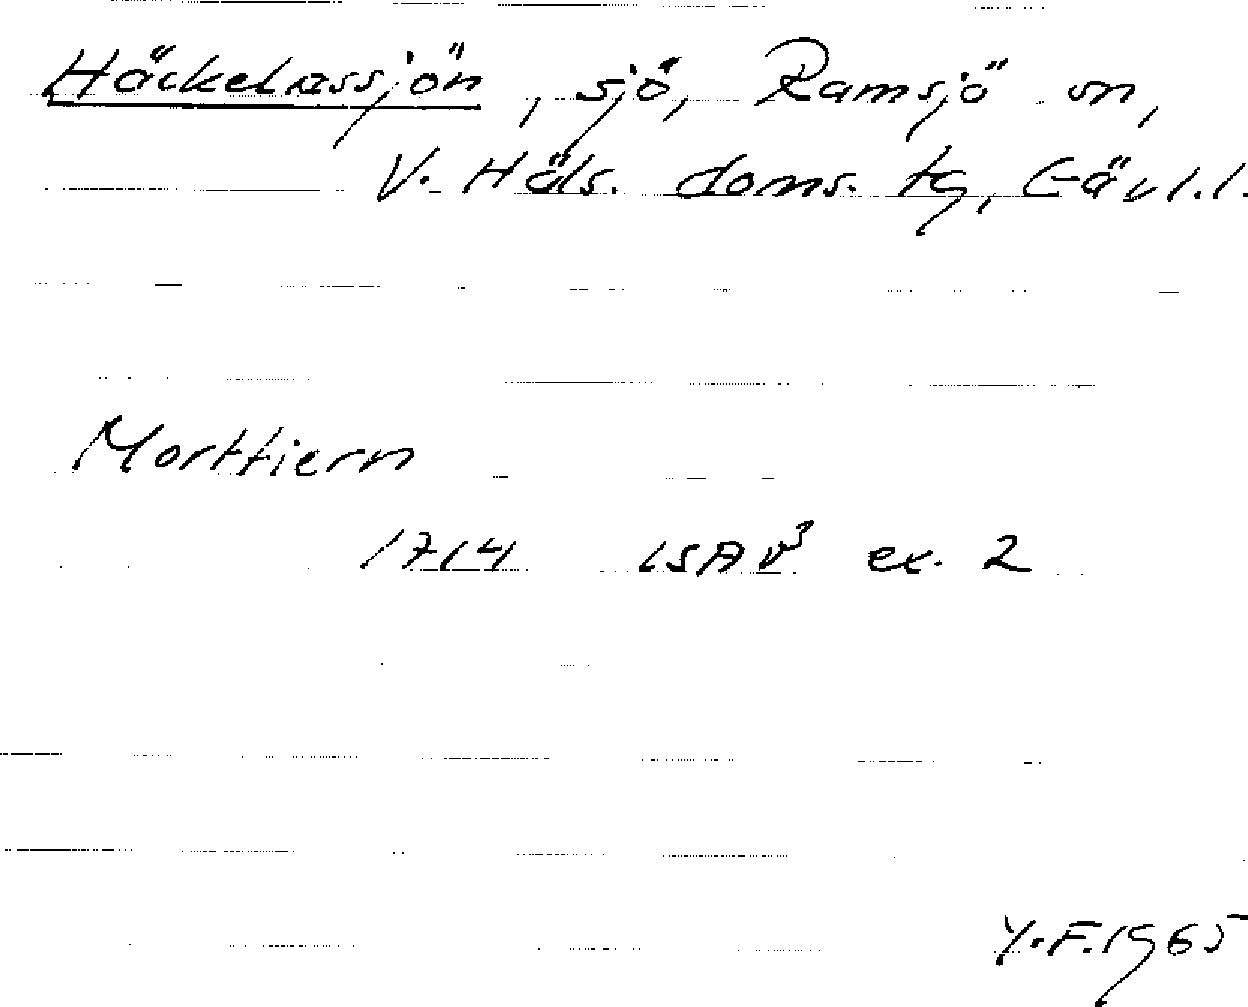 Häckelnssjön, sjö, Ramsjö sn,
V. Häls. doms. tg, Gävl.l.
Morttiern
1714 LSA V³ ex. 2
Y.F. 1965